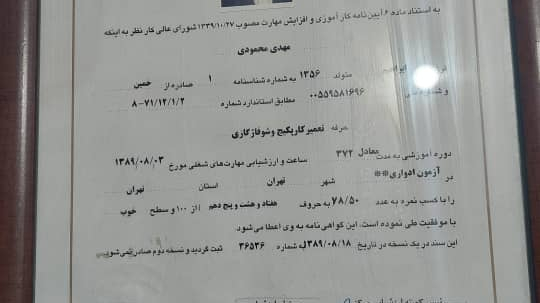 به استناد ماده ۶ آیین نامه کارآموزی و افزایش مهارت مصوب ۱۳۳۹/۱۰/۲۷ شورای عالی کار نظر به اینکه
مهدی محمودی
ابراهیم متولد ۱۳۵۶ به شماره شناسنامه ۱ صادره از خمین
و شماره ملی ۰۰۵۵۹۵۸۱۶۹۶ مطابق استاندارد شماره ۸-۷۱/۱۲/۱/۲
حرفه تعمیرکارپکیج وشوفاژگازی
دوره آموزشی به مدت معادل ۳۷۲ ساعت و ارزشیابی مهارت‌های شغلی مورخ ۱۳۸۹/۰۸/۰۳
در آزمون ادواری** شهر تهران استان تهران
را با کسب نمره به عدد ۷۸/۵۰ به حروف هفتاد و هشت و پنج دهم از ۱۰۰ و سطح خوب
با موفقیت طی نموده است. این گواهی نامه به وی اعطا می‌شود
این سند در یک نسخه در تاریخ ۱۳۸۹/۰۸/۱۸ به شماره ۳۶۵۳۶ ثبت گردید و نسخه دوم صادر نمی‌شود.